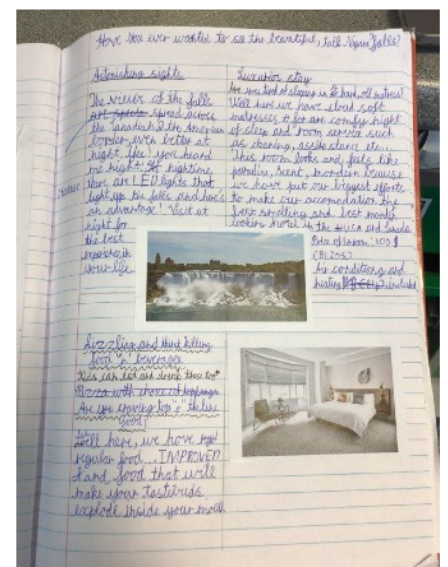 Have you ever wanted to see the beautiful, tall Niagara falls?
Astonishing sights
The views of the falls
spread across
the Canadian & the American
border, even better at
night. Yes! you heard
me right! At nightime,
there are LED lights that
light up the falls and here's
an advantage! Visit at
night for
the best
experience in
your life
Luxurior stay
Are you tired of sleeping in hard, old matress?
Well here we have cloud soft
matresses for a comfy night
of sleep and room service such
as cleaning, assistance etc...
This room looks and feels like
paradise, scent, mondern because
we have put our biggest efforts
to make our accomodation the
best smelling and best mondern
looking hotel in the USA and Canada
100 $
Air conditioning and
heating included
Sizzling and thirst killing
food "n" beverages
Kids can eat and drink these too
Pizza with choice of toppings
Are you craving
food?
Well here, we have
regular food IMPROVED
and food that will
make your tastebuds
explode inside your mouth